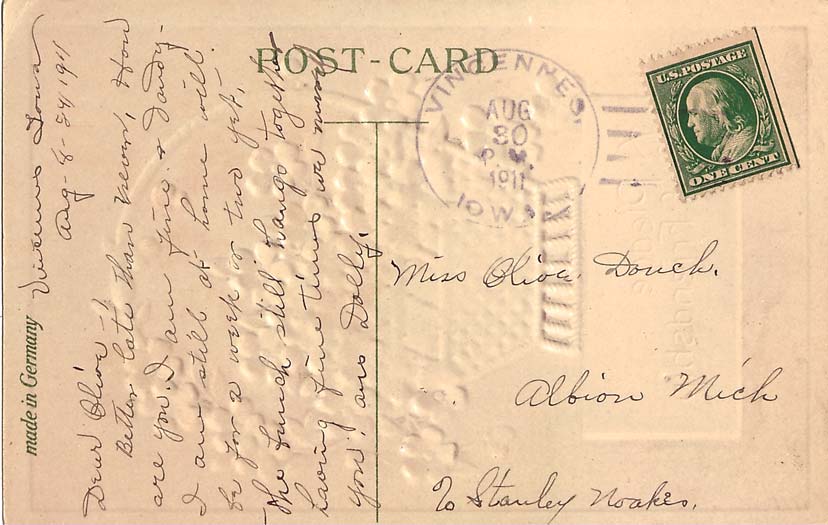 POST-CARD
made in Germany
Vincennes Iowa
Aug-8-29 1911
Dear Olive -!
Better late than never, How
are you. I am fine & dandy-
I am still at home will
be for a week or two yet,-
The bunch still hangs together
having fine times we miss
you, ans Dolly.
VINCENNES,
AUG
30
P M.
1911
IOWA
U.S. POSTAGE
ONE CENT
Miss Olive. Douch.
Albion Mich
To Stanley Noakes.